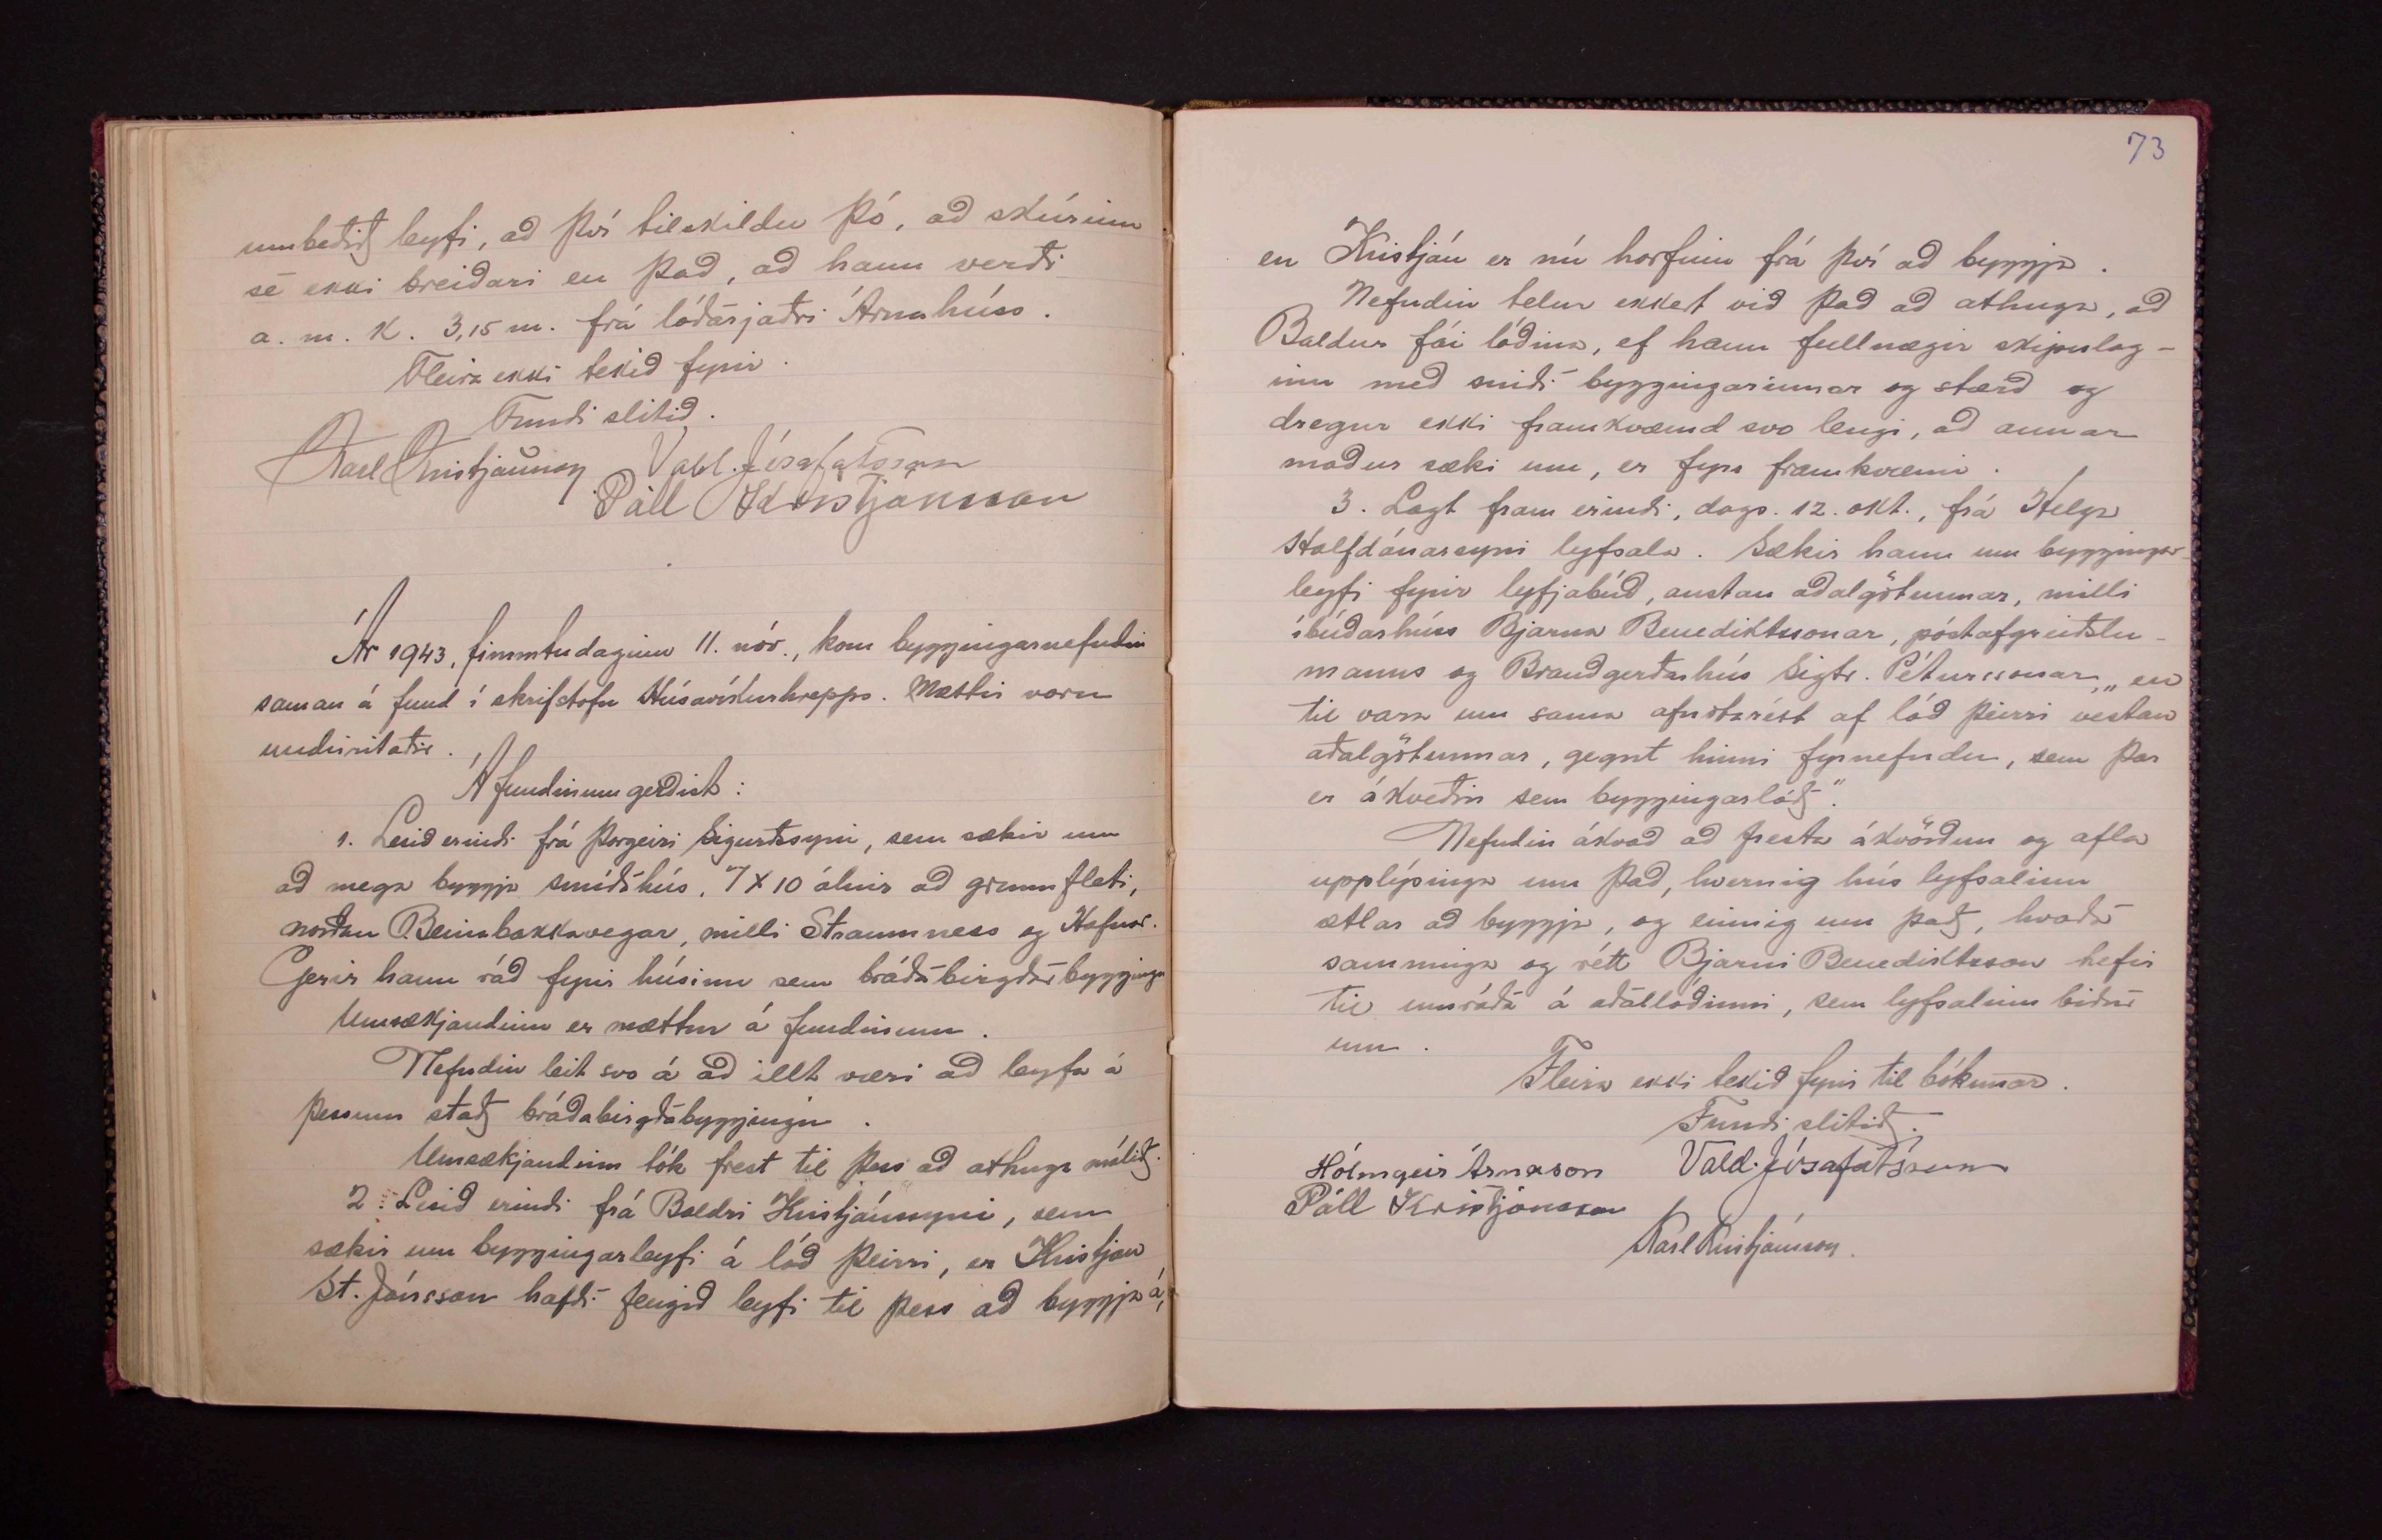 umbeðið leyfi, að því tilskildu þó, að skúrinn
sé ekki breiðari en það, að hann verði
a. m. k. 3,15 m. frá lóðarjaðri Árnahúss.
Fleira ekki tekið fyrir.
Fundi slitið.
Karl Kristjánsson Vald. Jósafatsson
Páll Kristjánsson
Ár 1943, fimmtudaginn 11. nóv., kom byggingarnefndin
saman á fund í skrifstofu Húsavíkurhrepps. Mættir voru
undirritaðir.
Á fundinum gerðist:
1. Lesið erindi frá Þorgeiri Sigurðssyni, sem sækir um
að mega byggja smíðahús, 7 x 10 álnir að grunnfleti,
norðan Beinabakkavegar, milli Straumness og Hafnar.
Gerir hann ráð fyrir húsinu sem bráðabirgðabyggingu
Umsækjandinn er mættur á fundinum.
Nefndin leit svo á að illt væri að leyfa á
þessum stað bráðabirgðabyggingu.
Umsækjandinn tók frest til þess að athuga málið.
2. Lesið erindi frá Baldri Kristjánssyni, sem
sækir um byggingarleyfi á lóð þeirri, er Kristján
St. Jónsson hafði fengið leyfi til þess að byggja á,
73
en Kristján er nú horfinn frá því að byggja.
Nefndin telur ekkert við það að athuga, að
Baldur fái lóðina, ef hann fullnægir skipulag-
inu með sniði byggingarinnar og stærð og
dregur ekki framkvæmd svo lengi, að annar
maður sæki um, er fyrr framkvæmi.
3. Lagt fram erindi, dags. 12. okt., frá Helga
Halfdánarsyni lyfsala. Sækir hann um byggingar-
leyfi fyrir lyfjabúð, austan aðalgötunnar, milli
íbúðarhúss Bjarna Benediktssonar, póstafgreiðslu-
manns og Brandgerðarhúss Sigtr. Péturssonar, „en
til vara um sama afnotarétt af lóð þeirri vestan
aðalgötunnar, gegnt hinni fyrnefndu, sem þar
er ákveðin sem byggingarlóð".
Nefndin ákvað að fresta ákvörðun og afla
upplýsinga um það, hvernig hús lyfsalinn
ætlar að byggja, og einnig um það, hvaða
samninga og rétt Bjarni Benediktsson hefir
til umráða á aðallóðinni, sem lyfsalinn biður
um.
Fleira ekki tekið fyrir til bókunar.
Fundi slitið.
Hólmgeir Árnason Vald. Jósafatsson
Páll Kristjánsson
Karl Kristjánsson.